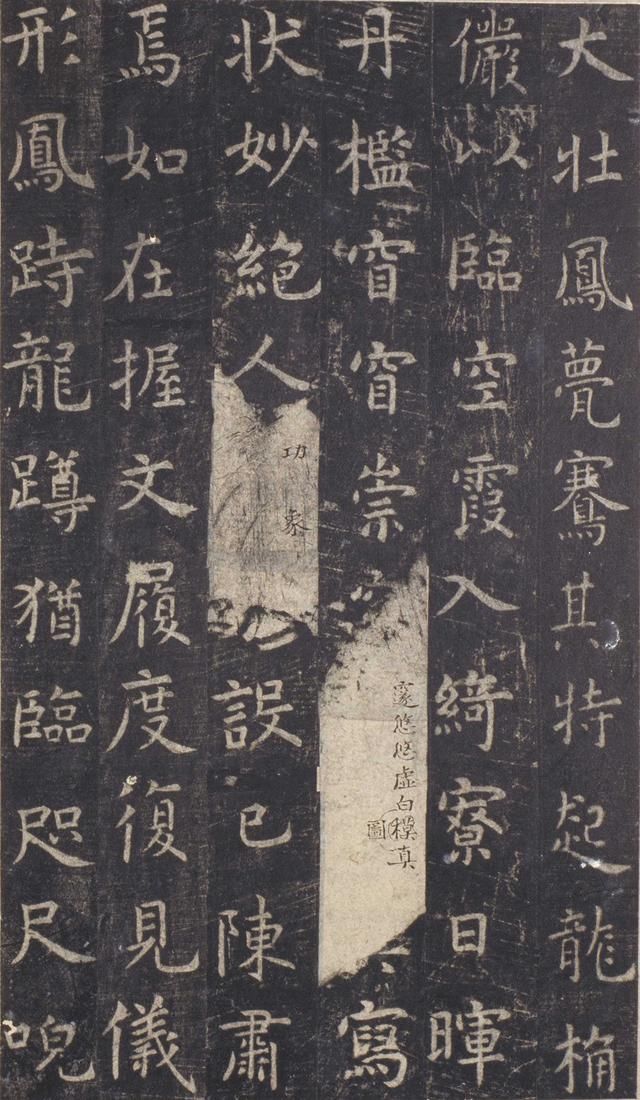 大壯鳳甍騫其特起龍桷
儼以臨空霞入綺寮日暉
丹檻窅窅崇寫
邃悠悠虛白模真
圖
狀妙絕人
功象
設已陳肅
焉如在握文履度復見儀
形鳳跱龍蹲猶臨咫尺唲